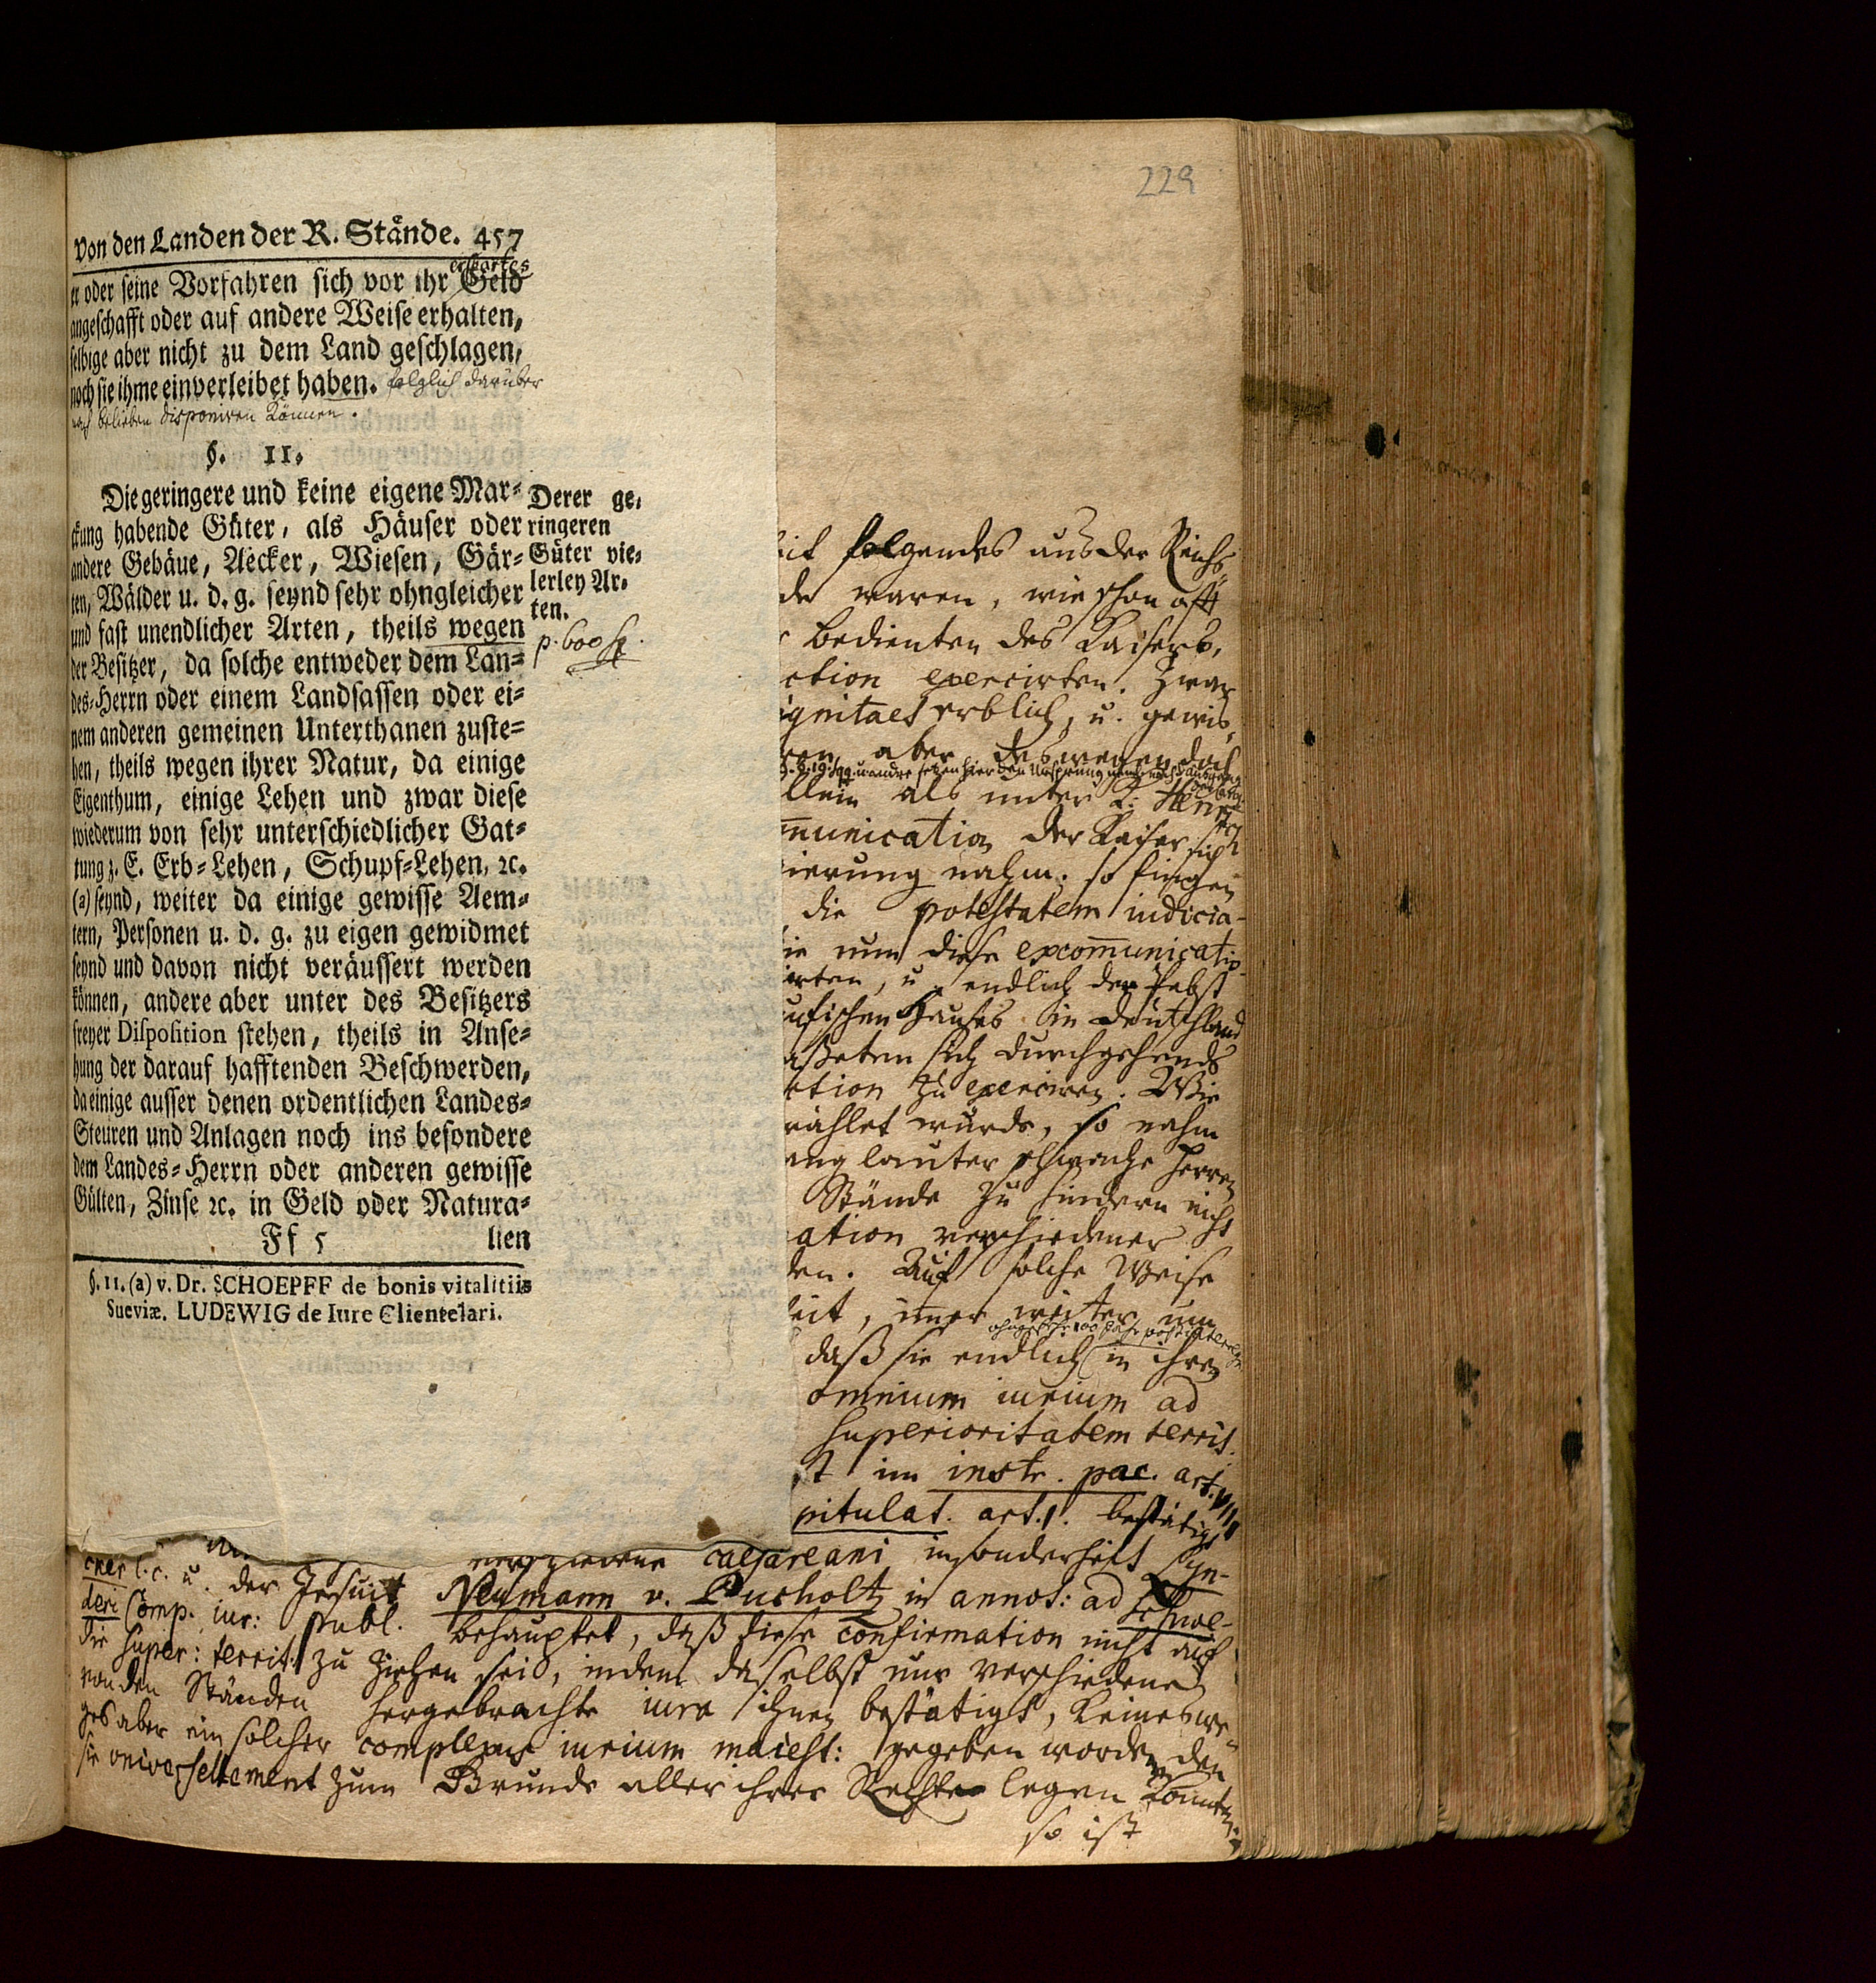 von den Landen der R. Stände. 457
er oder seine Vorfahren sich vor ihr erspartes Geld
angeschafft oder auf andere Weise erhalten,
selbige aber nicht zu dem Land geschlagen,
noch sie ihme einverleibet haben. folglich darüber
nach belieben disponiren können.
§. 11.
Die geringere und keine eigene Mar-
ckung habende Güter, als Häuser oder
andere Gebäue, Aecker, Wiesen, Gär-
ten, Wälder u. d. g. seynd sehr ohngleicher
und fast unendlicher Arten, theils wegen
der Besitzer, da solche entweder dem Lan-
des-Herrn oder einem Landsassen oder ei-
nem anderen gemeinen Unterthanen zuste-
hen, theils wegen ihrer Natur, da einige
Eigenthum, einige Lehen und zwar diese
wiederum von sehr unterschiedlicher Gat-
tung z. E. Erb-Lehen, Schupf-Lehen, ꝛc.
(a) seynd, weiter da einige gewisse Aem-
tern, Personen u. d. g. zu eigen gewidmet
seynd und davon nicht veräussert werden
können, andere aber unter des Besitzers
freyer Disposition stehen, theils in Anse-
hung der darauf hafftenden Beschwerden,
da einige ausser denen ordentlichen Landes-
Steuren und Anlagen noch ins besondere
dem Landes-Herrn oder anderen gewisse
Gülten, Zinse ꝛc. in Geld oder Natura-
Ff 5 lien
Derer ge-
ringeren
Güter vie-
lerley Ar-
ten.
p. 600 sq.
§. 11. (a) v. Dr. SCHOEPFF de bonis vitalitiis
Sueviæ. LUDEWIG de Iure Clientelari.
229
folgendes aus der Reichs
waren, wie schon offt
bedienten des Kaisers,
ction exercirten. Zwar
ignitaet erblich, u. gewis
aber deswegen doch
llein als unter K. Henr
munication der Kaiser sich
ierung nahm. so fingen
die potestatem iudicia-
ie nun diese excommunicatio-
irten, u. endlich der Pabst
ufischen Hauses in Deutschland
aßeten sich durchgehends
ction zu exerciren. Wie
wählet wurde, so nahm
lauter schwache Herren
Stände zu hindern nicht
ation verschiedener
den. Auf solche Weise
eit, immer weiter um
daß sie endlich in ihren
omnium iurium ad
superioritatem territ.
st im instr. pac. art. VIII
pitulat. art. 1. bestätigt
verschiedene caesareani insonderheit Lyn-
cker l. c. u. der Jesuit Neumann v. Pucholtz in annot: ad Schwe-
deri Comp. iur: publ. behauptet, daß diese confirmation nicht auf
die super: territ: zu ziehen sei, indem daselbst nur verschiedene
von den Ständen hergebrachte iura ihnen bestätigt, keineswe-
ges aber ein solcher complexus iurium maiest: gegeben worden den
sie universellement zum Grunde aller ihrer Rechte legen könnten
so ist